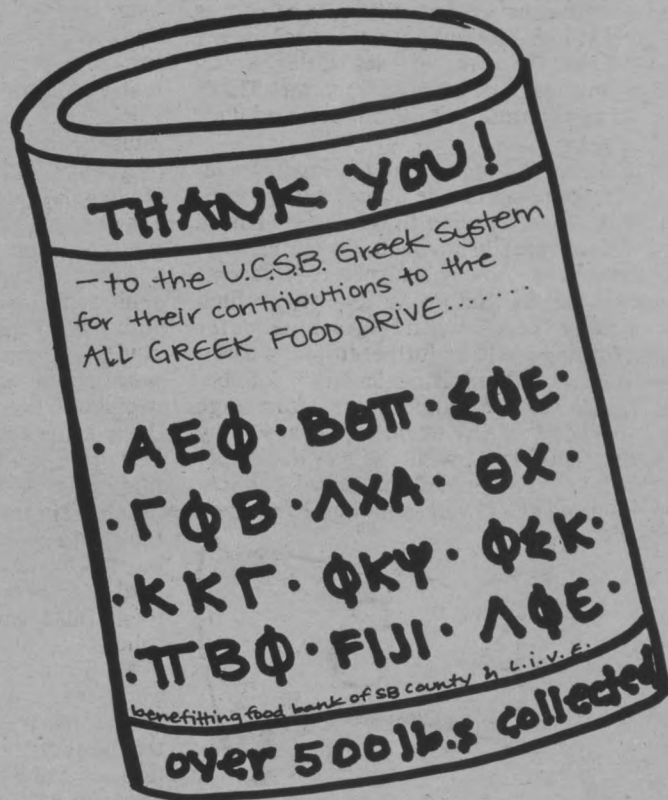 THANK YOU!
- to the U.C.S.B. Greek System
for their contributions to the
ALL GREEK FOOD DRIVE.......
· ΑΕΦ · ΒΘΠ · ΣΦΕ ·
· ΓΦΒ · ΛΧΑ · ΘΧ ·
· ΚΚΓ · ΦΚΨ · ΦΣΚ ·
· ΠΒΦ · FIJI · ΛΦΕ ·
benefitting food bank of SB county & L.i.V.E.
over 500 lb.s collected